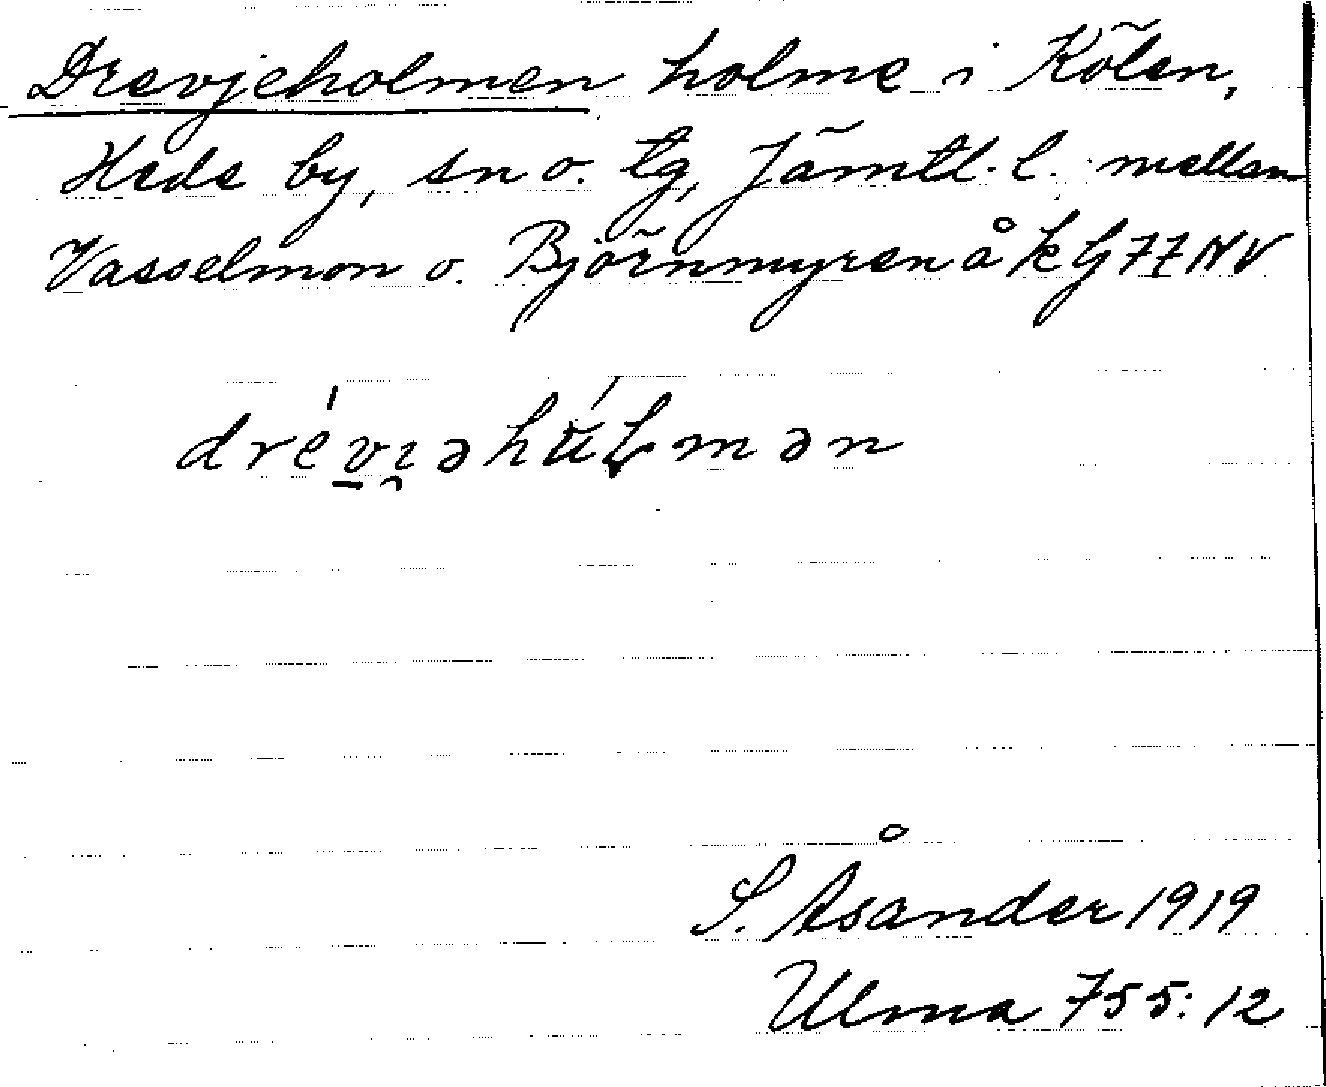 Drevjeholmen holme i Kölen,
Hede by, sn o. tg, Jämtl. l. mellan
Vasselmon o. Björnmyren å k G 77 NV
S. Åsander 1919
Ulma 755:12